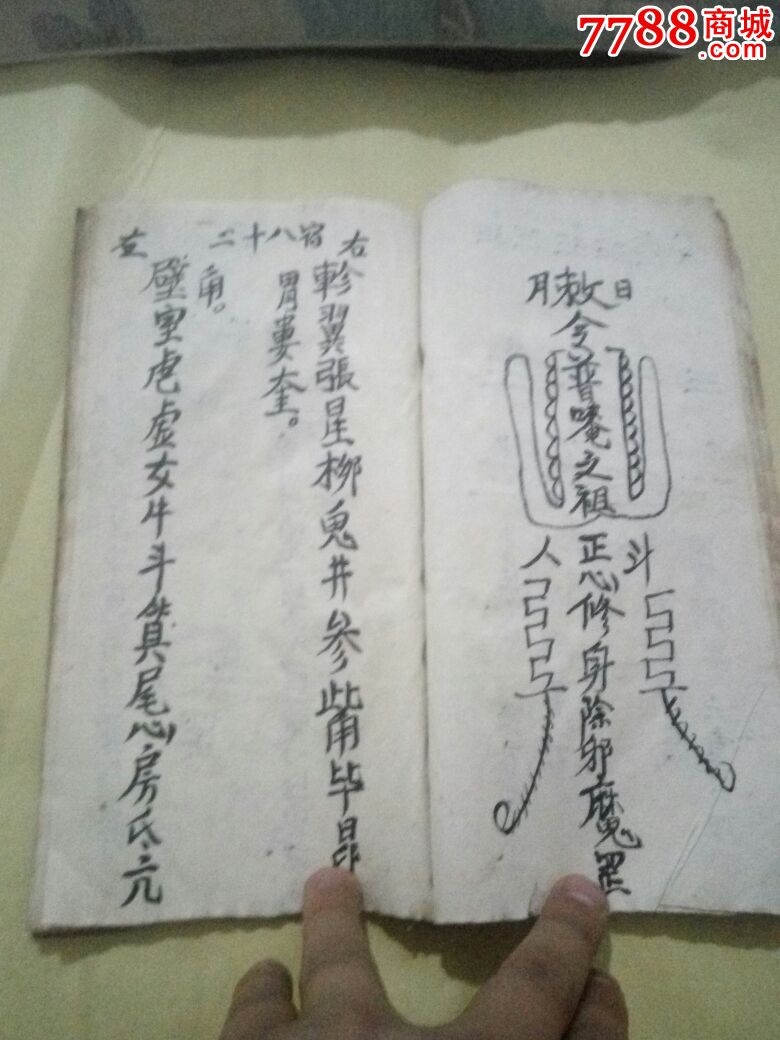 7788商城
.com
月敕日
令普唵之祖
人 斗
正心修身除邪魔罡
左 二十八宿 右
軫翼張星柳鬼井参觜毕昴
胃婁奎。
壁室危虚女牛斗箕尾心房氐亢
角。